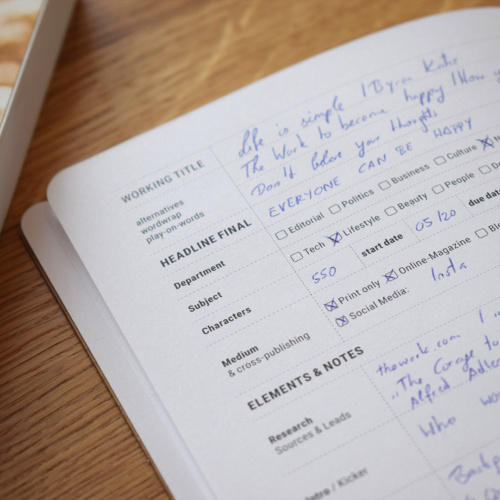 WORKING TITLE
alternatives
wordwrap
play-on-words
Life is simple | Byron Katie
The Work to become happy | How
Don't believe your thoughts
HEADLINE FINAL
EVERYONE CAN BE HAPPY
Department
Editorial Politics Business Culture
Tech Lifestyle Beauty People
Subject
start date 05/20 due da
Characters
550
Medium
& cross-publishing
Print only Online-Magazine Blo
Social Media: Insta
ELEMENTS & NOTES
Research
Sources & Leads
thework.com
"The Courage to
Alfred Adler
Who
/ Kicker
Backp